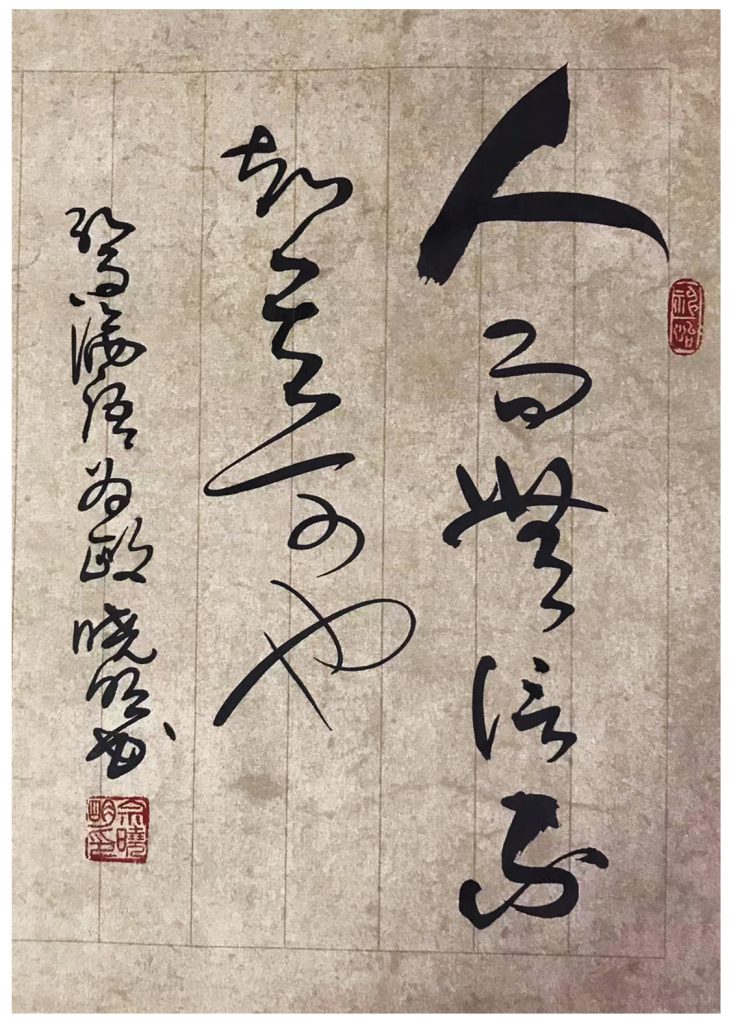 人而無信不
知其可也
論語為政 曉明書
余曉明印